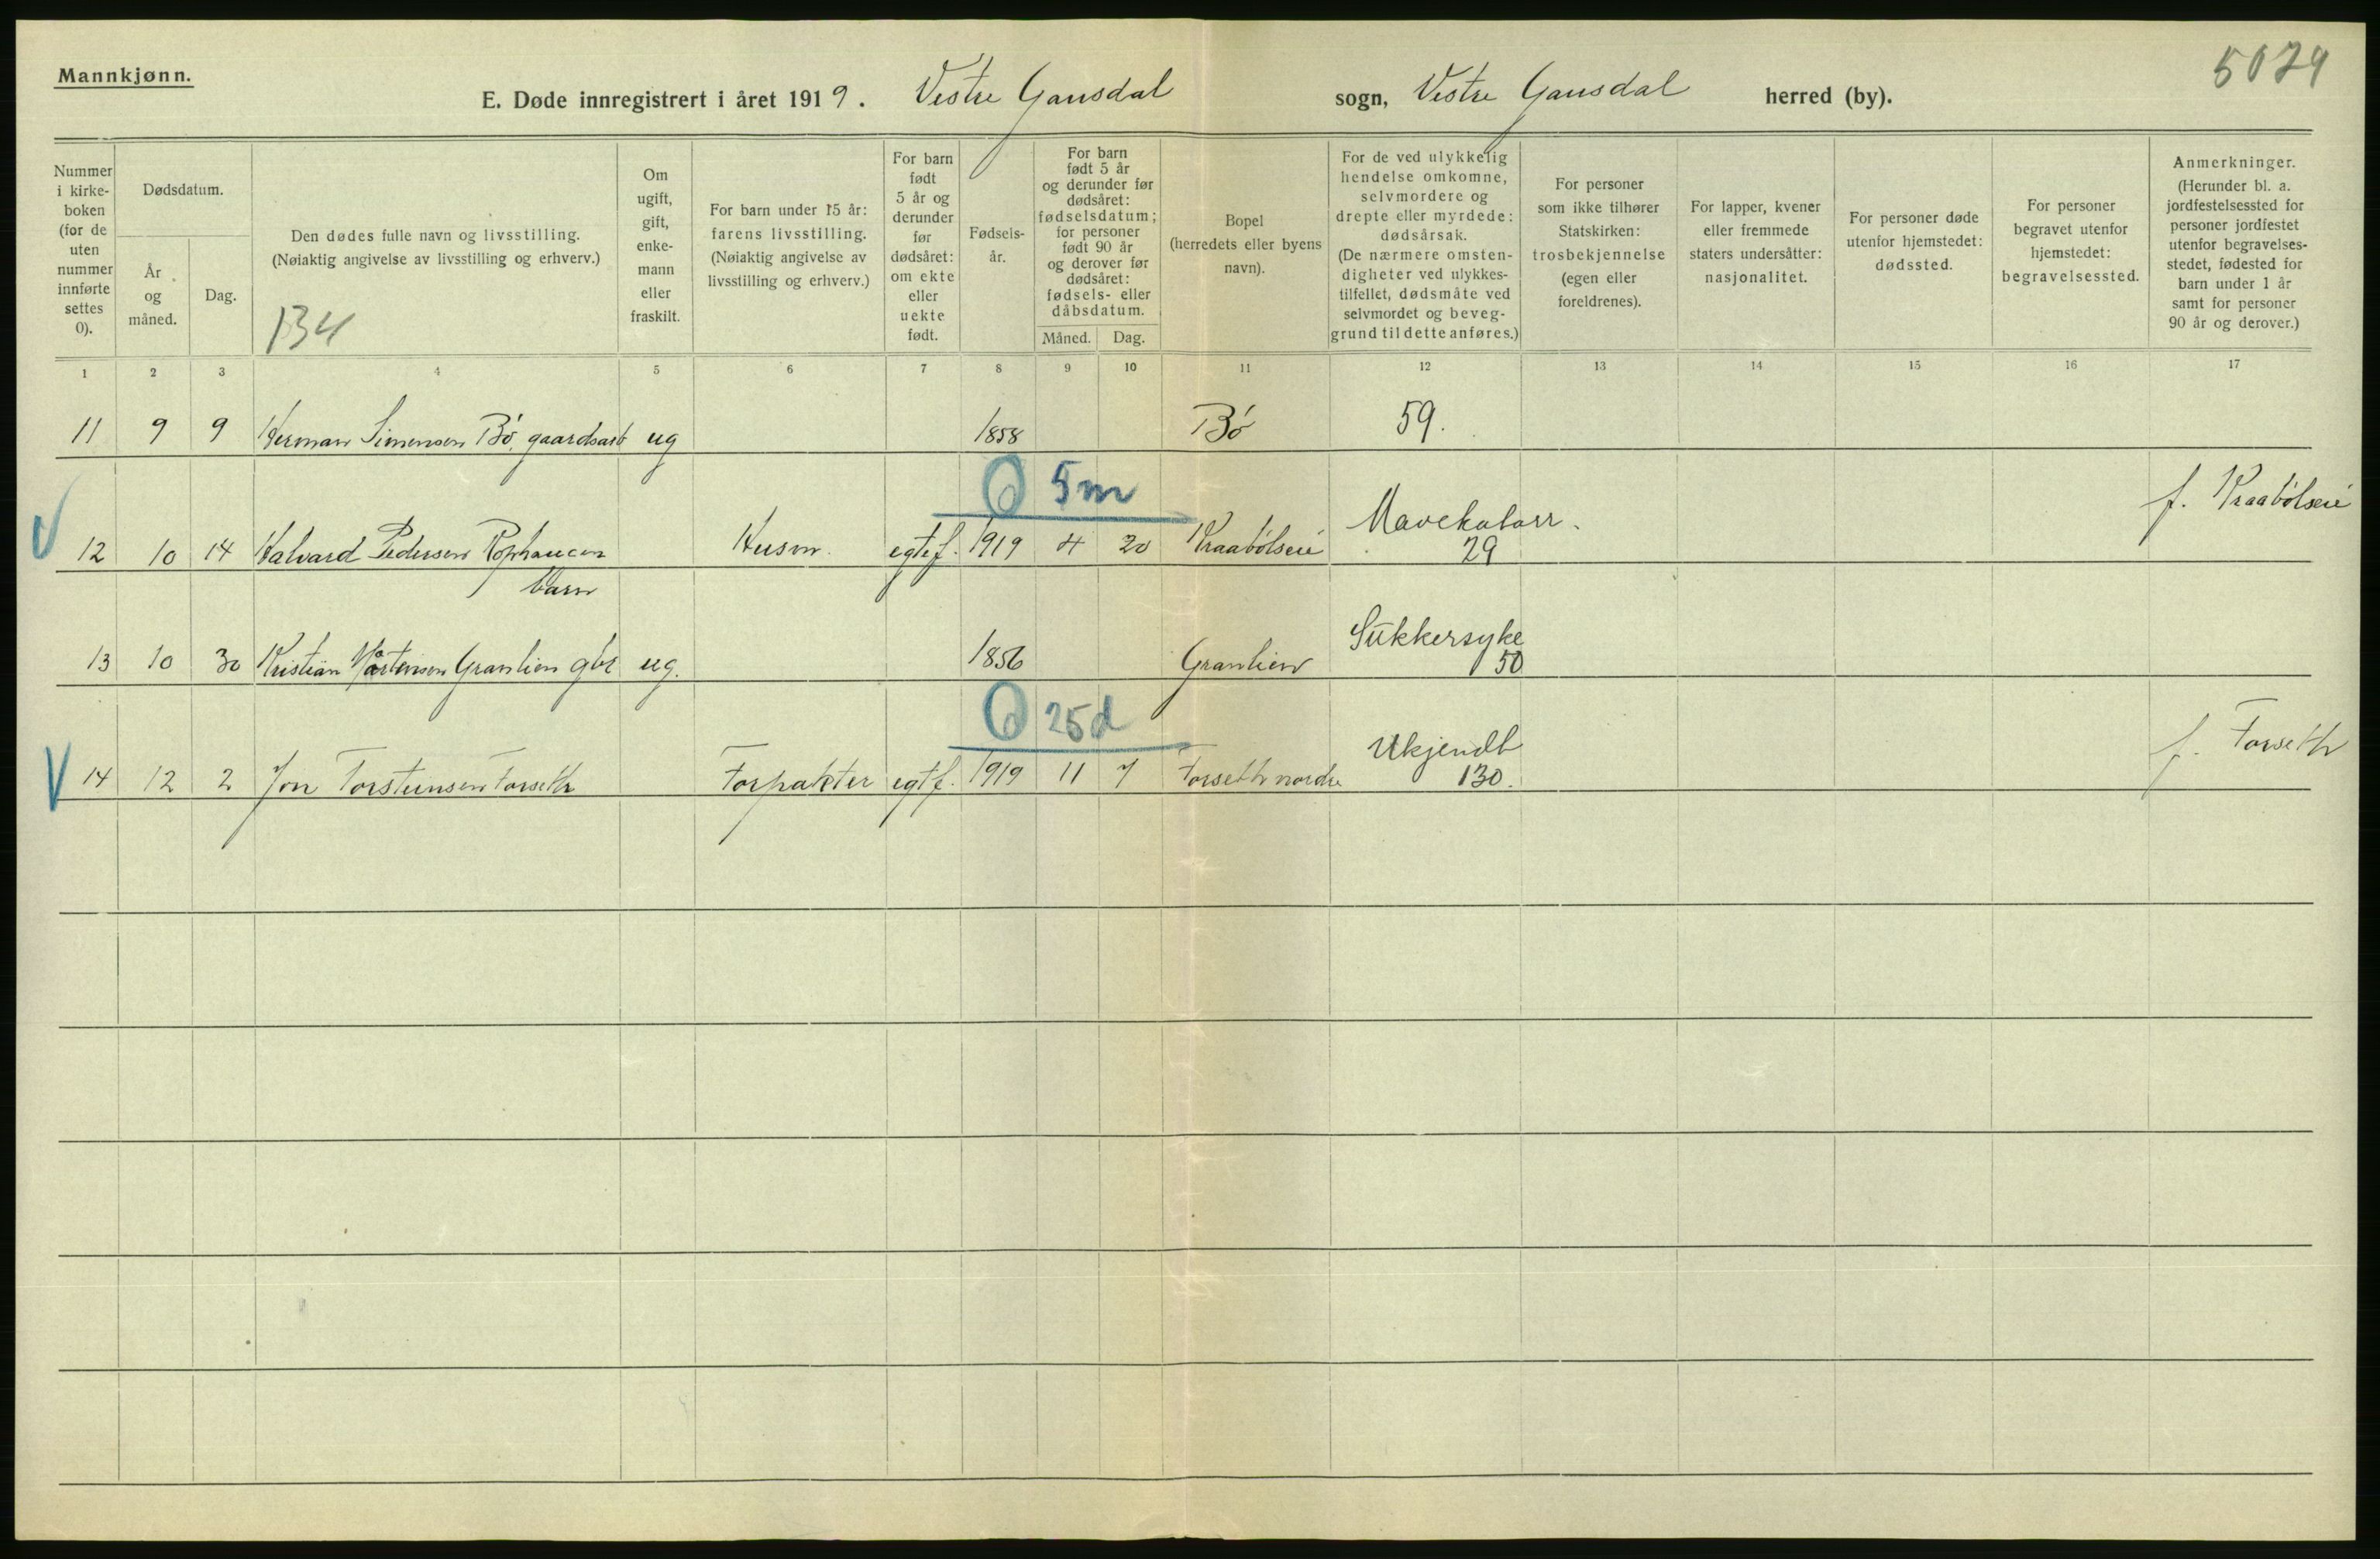 Mannkjønn.
5079
E. Døde innregistrert i året 1919. Vestre Gausdal sogn, Vestre Gausdal herred (by).
Nummer i kirke-boken (for de uten nummer innførte settes 0).
Dødsdatum.
År og måned.
Dag.
Den dødes fulle navn og livsstilling.
(Nøiaktig angivelse av livsstilling og erhverv.)
134
Om ugift, gift, enke-mann eller fraskilt.
For barn under 15 år: farens livsstilling.
(Nøiaktig angivelse av livsstilling og erhverv.)
For barn født 5 år og derunder før dødsåret: om ekte eller uekte født.
Fødsels-år.
For barn født 5 år og derunder før dødsåret: fødselsdatum; for personer født 90 år og derover før dødsåret: fødsels- eller dåbsdatum.
Måned. Dag.
Bopel (herredets eller byens navn).
For de ved ulykkelig hendelse omkomne, selvmordere og drepte eller myrdede: dødsårsak.
(De nærmere omsten-digheter ved ulykkes-tilfellet, dødsmåte ved selvmordet og beveg-grund til dette anføres.)
For personer som ikke tilhører Statskirken: trosbekjennelse (egen eller foreldrenes).
For lapper, kvener eller fremmede staters undersåtter: nasjonalitet.
For personer døde utenfor hjemstedet: dødssted.
For personer begravet utenfor hjemstedet: begravelsessted.
Anmerkninger.
(Herunder bl. a. jordfestelsessted for personer jordfestet utenfor begravelses-stedet, fødested for barn under 1 år samt for personer 90 år og derover.)
1 2 3 4 5 6 7 8 9 10 11 12 13 14 15 16 17
11 9 9 Herman Simensen Bø, gaardsarb ug 1858 Bø 59.
6 5 m
V 12 10 14 Halvard Pedersen Husm. egtef. 1919 4 20 Kraabølseie Mavekatarr. 29 f. Kraabølseie
barn
13 10 30 Kristian Mortensen Granlien gbr ug. 1856 Granlien Sukkersyke 50
6 25 d
V 14 12 2 Jon Torstensen Forseth Forpakter egtf. 1919 11 7 Forseth nordre Ukjendt 130. f. Forseth